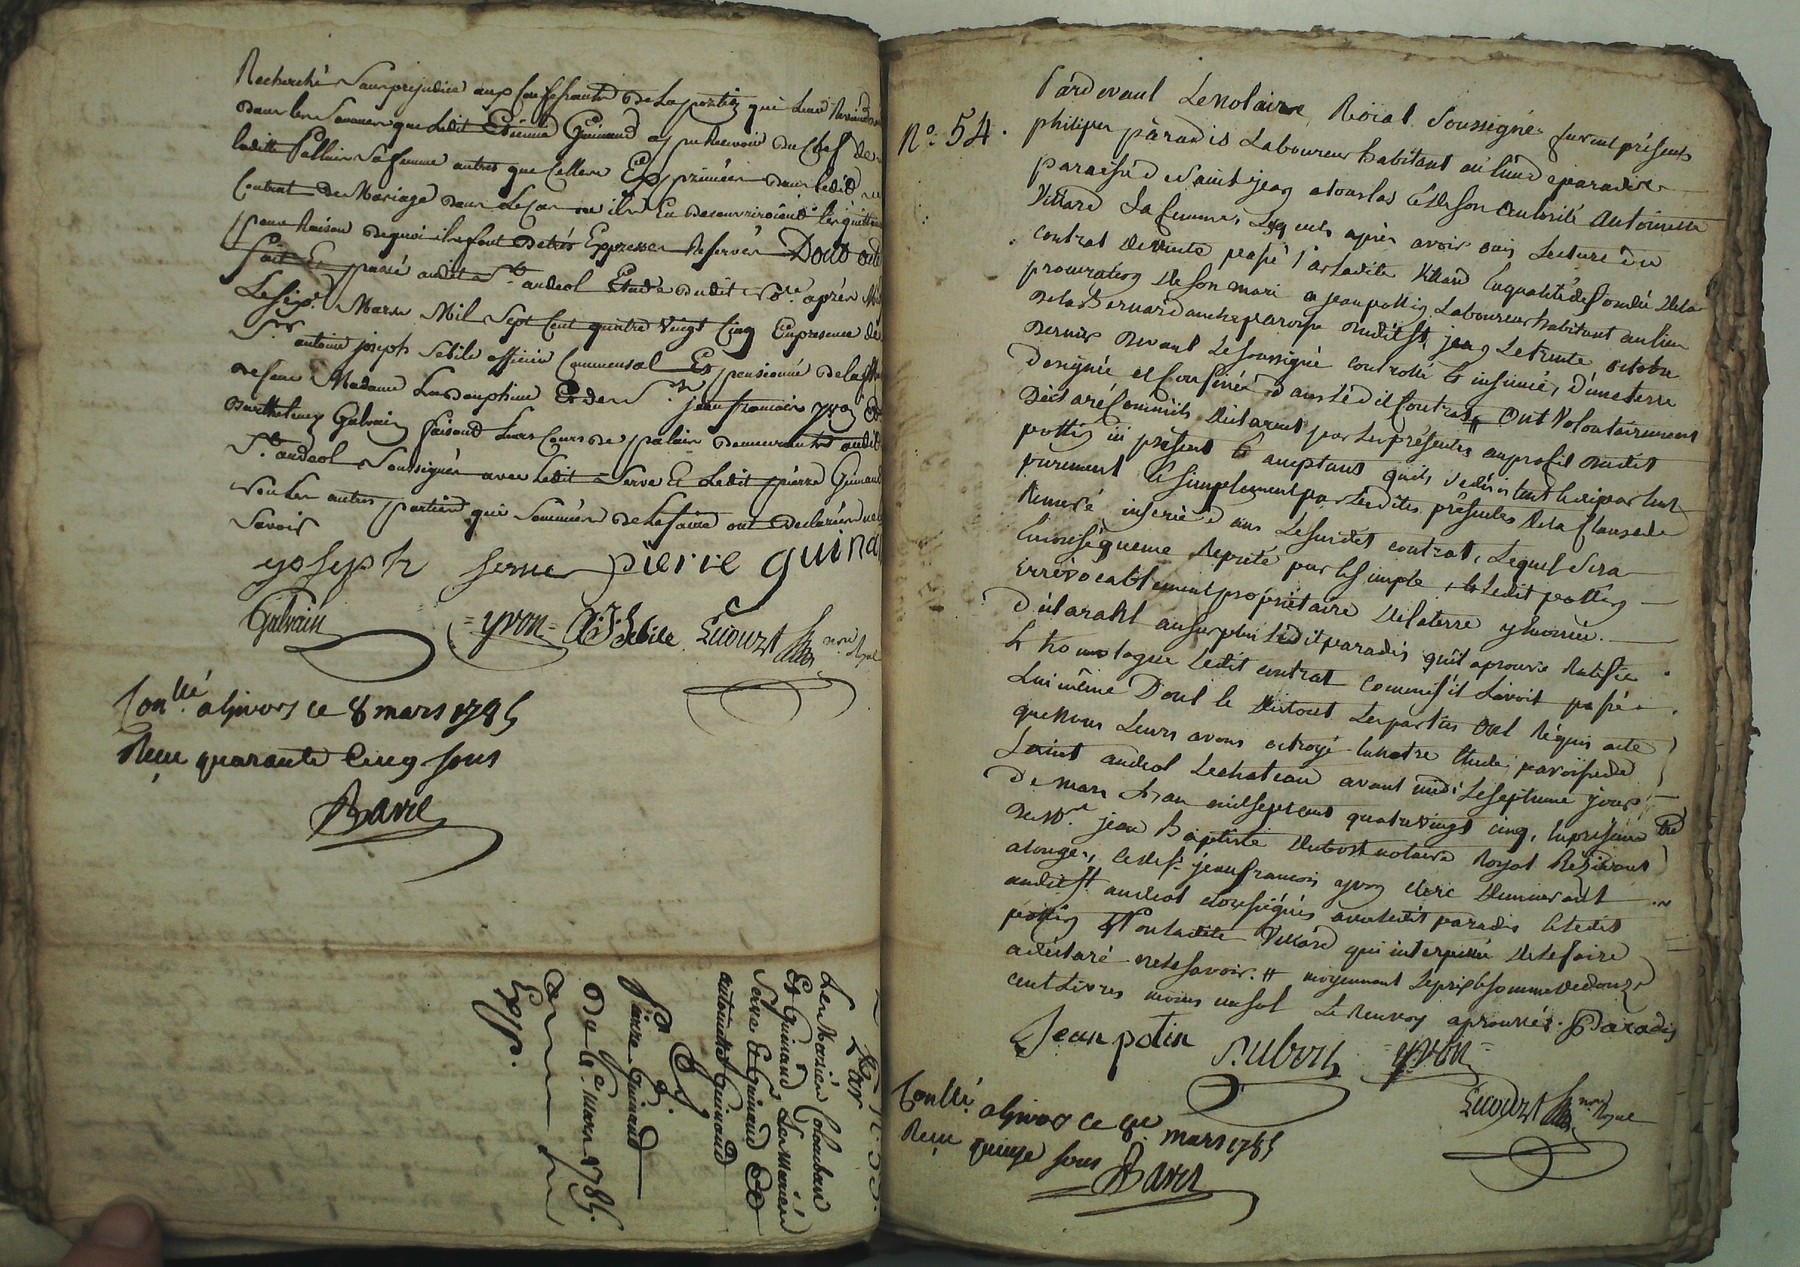 Recherché sans prejudice aux confessants de la portion qui leur
dans les sommes que Ledit Etienne Guinand a pu Recevoir du Chef de
laditte sa femme autres que Celles Exprimées dans ledit
Contrat de Mariage dans le Cas ou ils En decouvriroient
pour Raison de quoi ils font de très Expresses Reserves Dont acte
fait Et passé audit St andeol Etude dudit nore après Mi
Le Sept Mars Mil Sept Cent quatre vingt Cinq En presence de
Sr antoine joseph Sebile officier Commensal Et pensionné de la
de feue Madame La dauphine Et de Sr jean françois yvon Et
Barthelemy Galvain faisant leurs Cours de palais demeurants audit
St andeol Soussignés avec Ledit Serve Et Ledit pierre Guinand
non Les autres parties qui Sommées de le faire ont declaré ne
Savoir
yoseph serve pierre guinan
Galvain = yvon = A:J: Sebile Lecourt nore Royal
Conllé a Givors ce 8 mars 1785
Reçu quarante Cinq sous
Bavel
N. 53.
Par
Les Mariés Colomban
Et Guinand, Les Mariés
Serve Et Guinand Et
antoinette Guinand
a
Pierre Guinand
Du 7e Mars 1785.
Exp.
Pardevant Le Notaire Roïal Soussigné furent présents
No. 54. philipe paradis Laboureur habitant au lieu de paradis
paroisse de Saint jean a toulas Et de son autorité Antoinette
Villard sa femme, Lesquels après avoir ouis Lecture du
contrat de vente passé par ladite Villard En qualité de fondée de la
procuration de son mari a jean pottin Laboureur habitant au lieu
de la Bernardanche paroisse dudit St jean Le trente octobre
dernier devant Le soussigné controllé & insinué, d'une terre
designée et Confinée dans Ledit Contrat # ont Volontairement
Déclaré Comm'ils déclarent par les présentes au profit dudit
pottin ici présent & aceptant qu'ils se désistent & départent
purement & simplement par Lesdites présentes de la Clause de
Rémeré inserrée dans Le susdit contrat, Lequel sera
En conséquence Réputé pur & simple, & Ledit pottin
irrévocablement propriétaire de la terre y Enoncée.
Déclarant au surplus Ledit paradis qu'il aprouve Ratifie
& homologue Ledit contrat Comme s'il L'avoit passé
Lui même Dont & du tout Les parties ont Réquis acte
que Nous Leurs avons octroyé En notre Etude paroisse de
Saint andeol Le chateau avant midi Le septième jour
De mars L'an mil sept cent quatre vingt cinq, En présence
de Me jean Baptiste Dubost notaire Royal Résidant
a longes, & de Sr jean francois yvon clerc Demeurant
audit St andeol soussignés avec Ledit paradis & Ledit
pottin & Non Ladite Villard qui interpellée de le faire
a déclaré ne le savoir. # moyennant Le prix & somme de douze
cent Livres moins un sol Le Renvoy aprouvé. Paradis
Jean potin Dubost = yvon = Lecourt nore Royal
Conllé a Givors ce 8e mars 1785
Reçu quinze sous Bavel